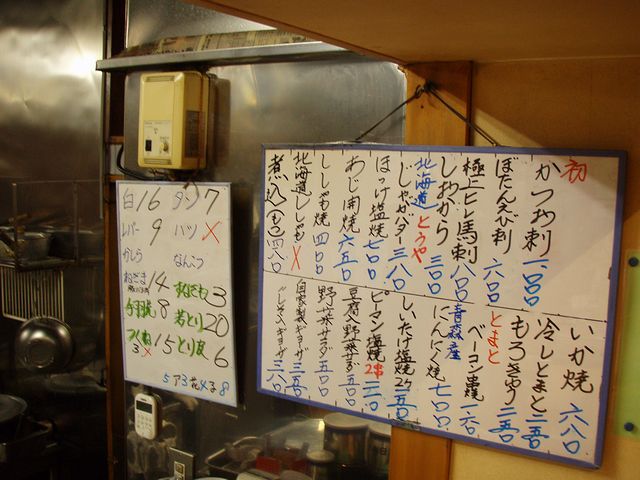 初
かつお刺 一、〇〇〇
ぼたんえび刺 六〇〇
極上ヒレ馬刺 八〇〇
しおから 三〇〇
北海道とうや
じゃがバター 三八〇
ほっけ塩焼 七〇〇
あじ開焼 六五〇
ししゃも焼 四〇〇
北海道ししゃも ×
煮込(もつ) 四八〇
いか焼 六八〇
冷しとまと 三五〇
もろきゅう 三五〇
とまと
ベーコン串焼 二六〇
青森産
にんにく焼 七〇〇
しいたけ塩焼 2ケ 三五〇
ピーマン塩焼 2串
豆腐野菜サラダ 五五〇
野菜サラダ 五〇〇
自家製ギョーザ 三五〇
しそ入ギョーザ 三八〇
白 16 タン 7
レバー 9 ハツ ×
かしら なんこつ
ねぎま 14 すなぎも 3
手羽焼 8 若とり 20
つくね 15 とり皮 6
3×